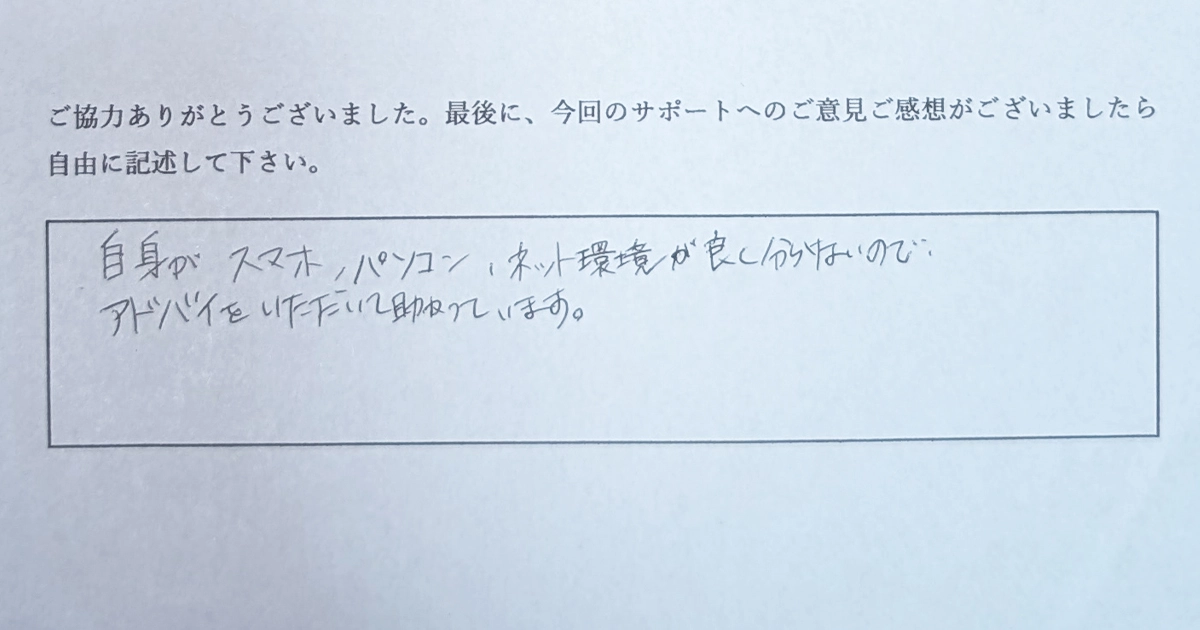 ご協力ありがとうございました。最後に、今回のサポートへのご意見ご感想がございましたら
自由に記述して下さい。
自身が スマホ、パソコン、ネット環境が良く分らないので、
アドバイをいただいて助かっています。